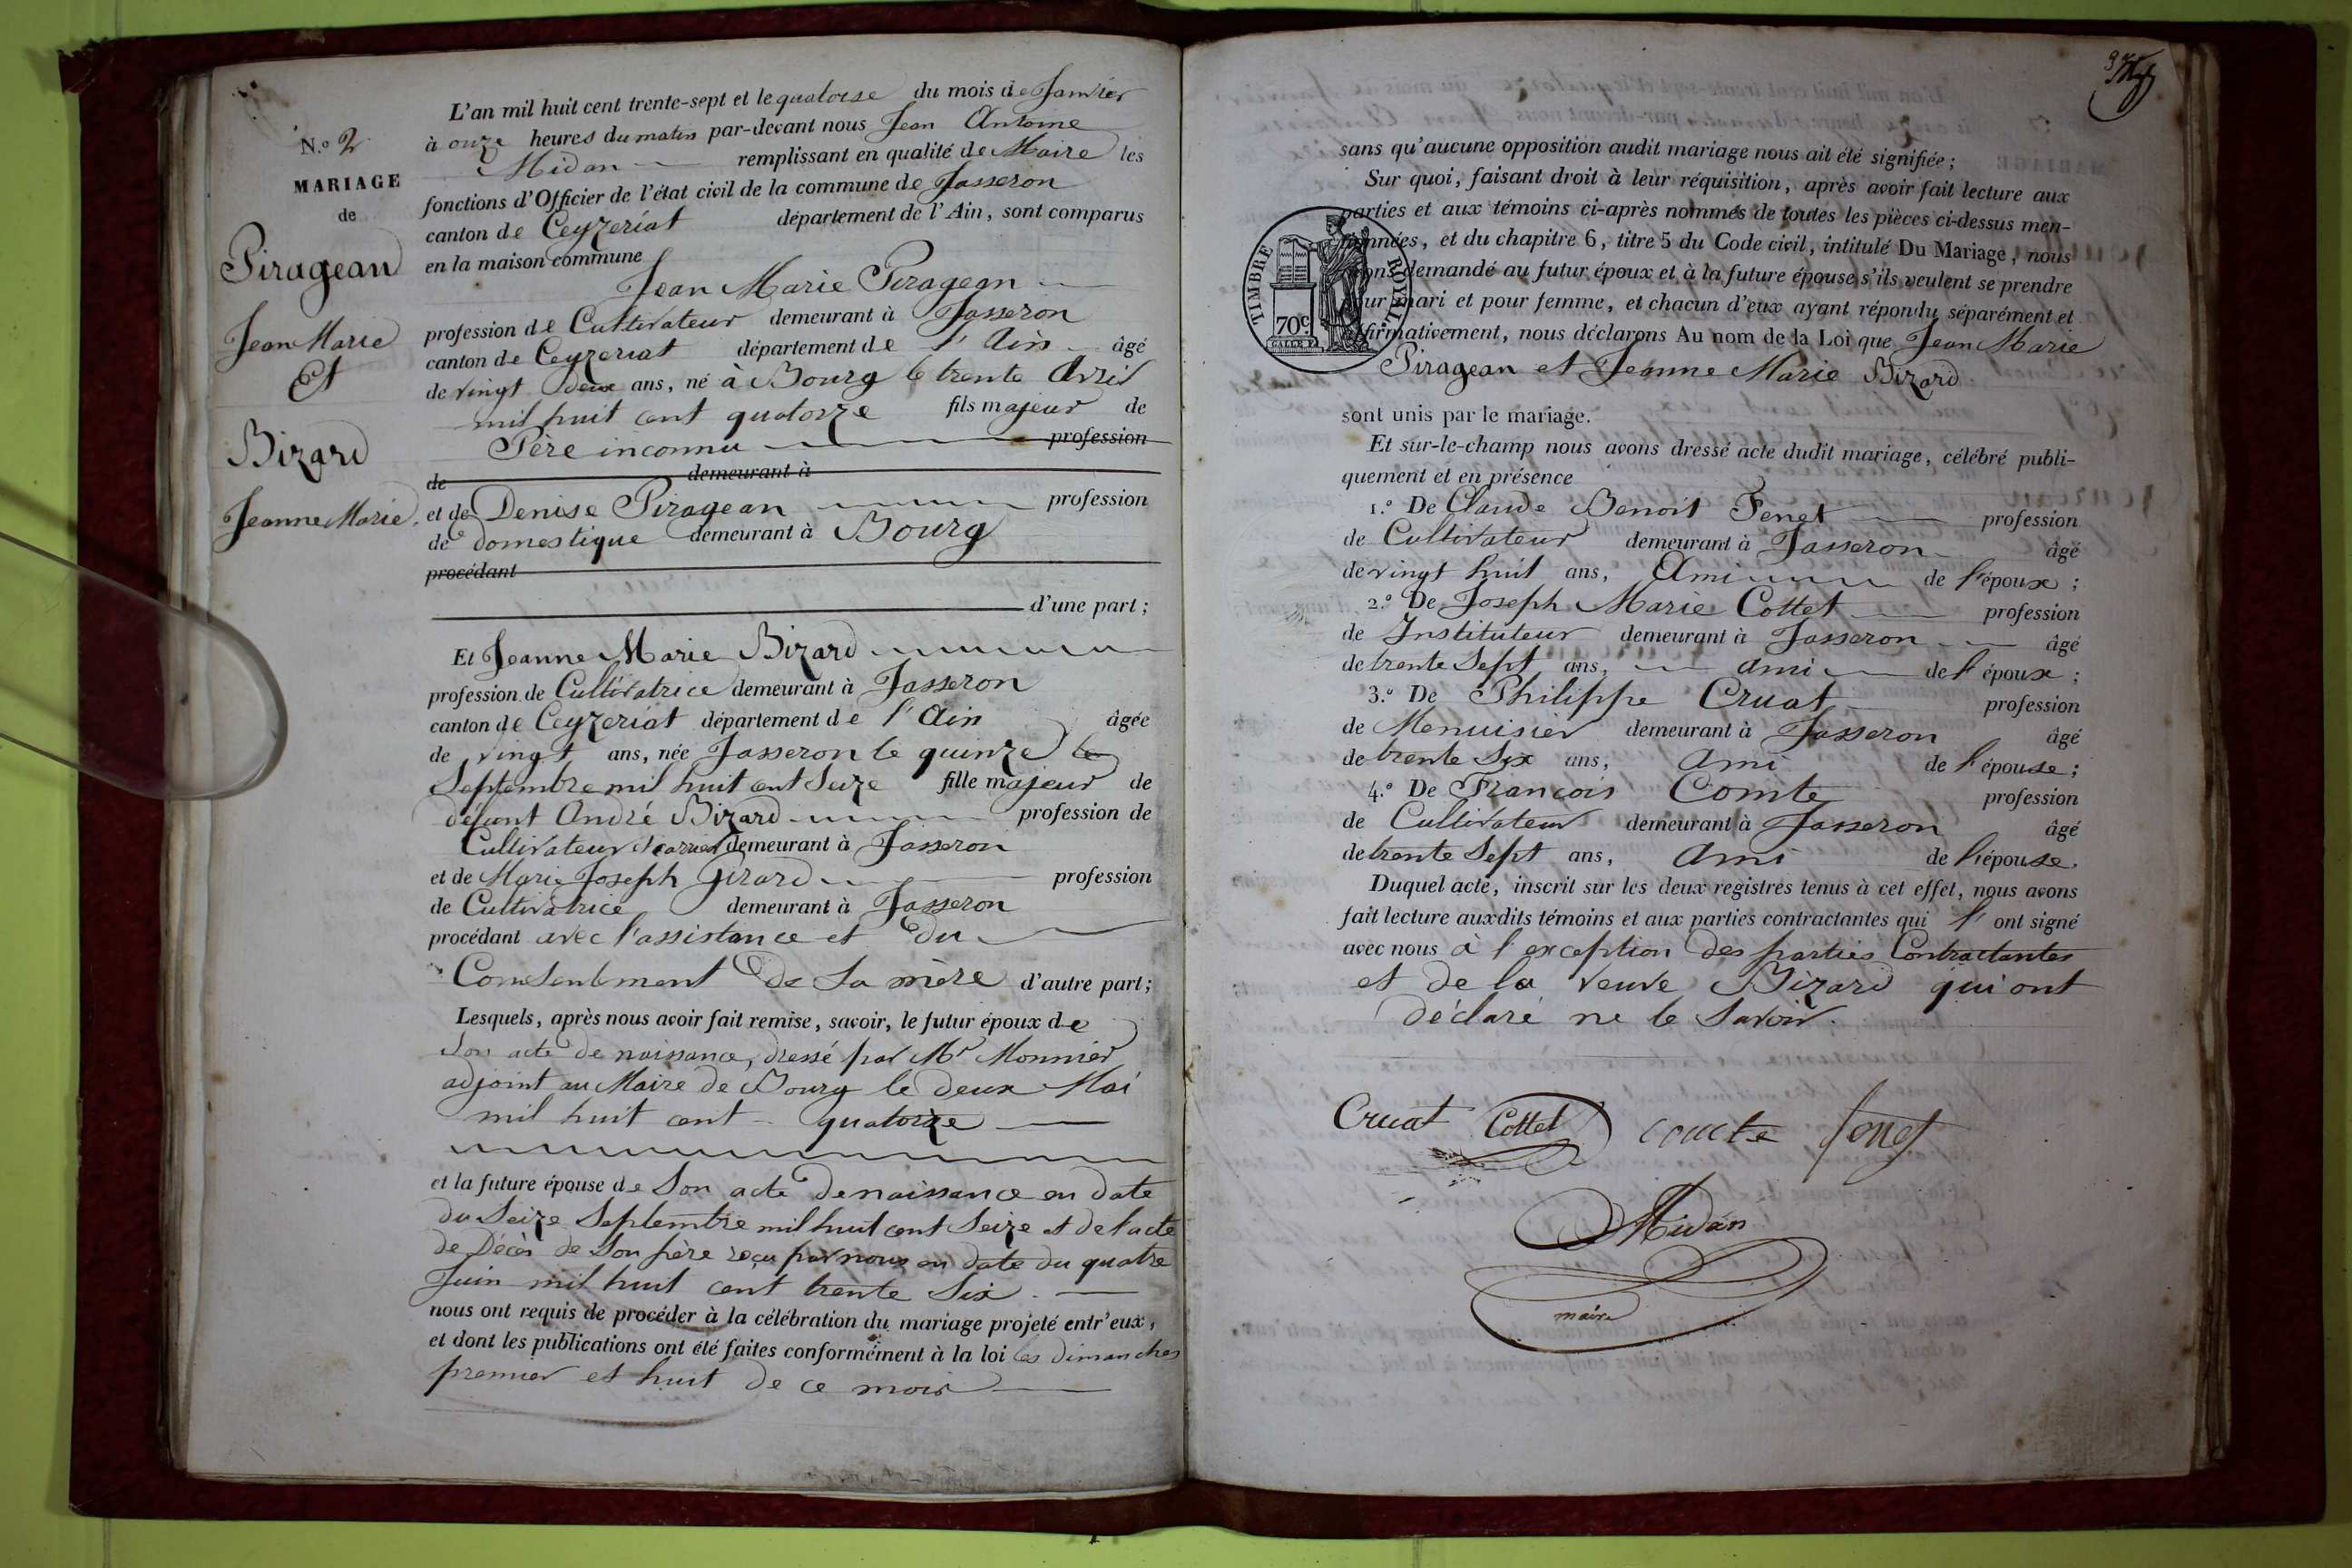 N.º 2
MARIAGE
de
Piragean
Jean Marie
Et
Bizard
Jeanne Marie.
L'an mil huit cent trente-sept et le quatorse du mois de Janvier
à onze heures du matin par-devant nous Jean Antoine
Midan remplissant en qualité de Maire les
fonctions d'Officier de l'état civil de la commune de Jasseron
canton de Ceyzeriat département de l'Ain, sont comparus
en la maison commune
Jean Marie Piragean
profession de Cultivateur demeurant à Jasseron
canton de Ceyzeriat département de l'Ain âgé
de vingt deux ans, né à Bourg le trente Avril
mil huit cent quatorze fils majeur de
Père inconnu profession
de demeurant à
et de Denise Piragean profession
de domestique demeurant à Bourg
procédant
d'une part;
Et Jeanne Marie Bizard
profession de Cultivatrice demeurant à Jasseron
canton de Ceyzeriat département de l'Ain âgée
de vingt ans, née Jasseron le quinze le
Septembre mil huit cent Seize fille majeur de
défunt André Bizard profession de
Cultivateur demeurant à Jasseron
et de Marie Joseph Girard profession
de Cultivatrice demeurant à Jasseron
procédant avec l'assistance et du
Consentement de Sa mère d'autre part;
Lesquels, après nous avoir fait remise, savoir, le futur époux de
Son acte de naissance, dressé par Mr Monnier
adjoint au Maire de Bourg le deux Mai
mil huit cent quatorze
et la future épouse de Son acte de naissance en date
du Seize Septembre mil huit cent Seize et de l'acte
de Décès de Son père reçu par nous en date du quatre
Juin mil huit cent trente Six.
nous ont requis de procéder à la célébration du mariage projeté entr'eux,
et dont les publications ont été faites conformément à la loi les dimanches
premier et huit de ce mois
sans qu'aucune opposition audit mariage nous ait été signifiée;
Sur quoi, faisant droit à leur réquisition, après avoir fait lecture aux
parties et aux témoins ci-après nommés de toutes les pièces ci-dessus men-
tionnées, et du chapitre 6, titre 5 du Code civil, intitulé Du Mariage, nous
avons demandé au futur époux et à la future épouse s'ils veulent se prendre
pour mari et pour femme, et chacun d'eux ayant répondu séparément et
affirmativement, nous déclarons Au nom de la Loi que Jean Marie
Piragean et Jeanne Marie Bizard
TIMBRE ROYAL
70c
sont unis par le mariage.
Et sur-le-champ nous avons dressé acte dudit mariage, célébré publi-
quement et en présence
1.º De Claude Benoit Fenet profession
de Cultivateur demeurant à Jasseron âgé
de vingt huit ans, Ami de l'époux;
2.º De Joseph Marie Cottet profession
de Instituteur demeurant à Jasseron âgé
de trente Sept ans, ami de l'époux;
3.º De Philippe Cruat profession
de Menuisier demeurant à Jasseron âgé
de trente Six ans, Ami de l'épouse;
4.º De François Comte profession
de Cultivateur demeurant à Jasseron âgé
de trente Sept ans, Ami de l'épouse.
Duquel acte, inscrit sur les deux registres tenus à cet effet, nous avons
fait lecture auxdits témoins et aux parties contractantes qui l'ont signé
avec nous à l'exception des parties Contractantes
et de la veuve Bizard qui ont
déclaré ne le Savoir.
Cruat Cottet comte fenet
Midan
maire